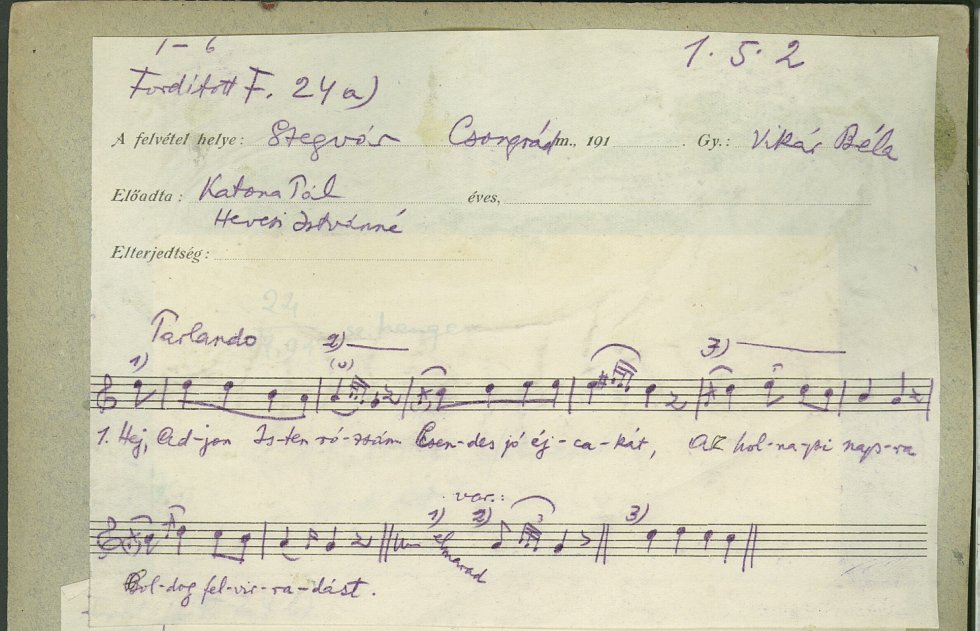 1-6
1.5.2
Fordított F. 24a)
A felvétel helye: Szegvár Csongrád m., 191 Gy.: Vikár Béla
Előadta: Katona Pál éves,
Hevesi Istvánné
Elterjedtség:
22
Parlando
1) 2) 3)
1. Hej, Ad-jon Is-ten ró-zsám Csen-des jó éj-ca-kát, Az hol-na-pi nap-ra
var.:
1) elmarad 2) 3)
Bol-dog fel-vir-ra-dást.